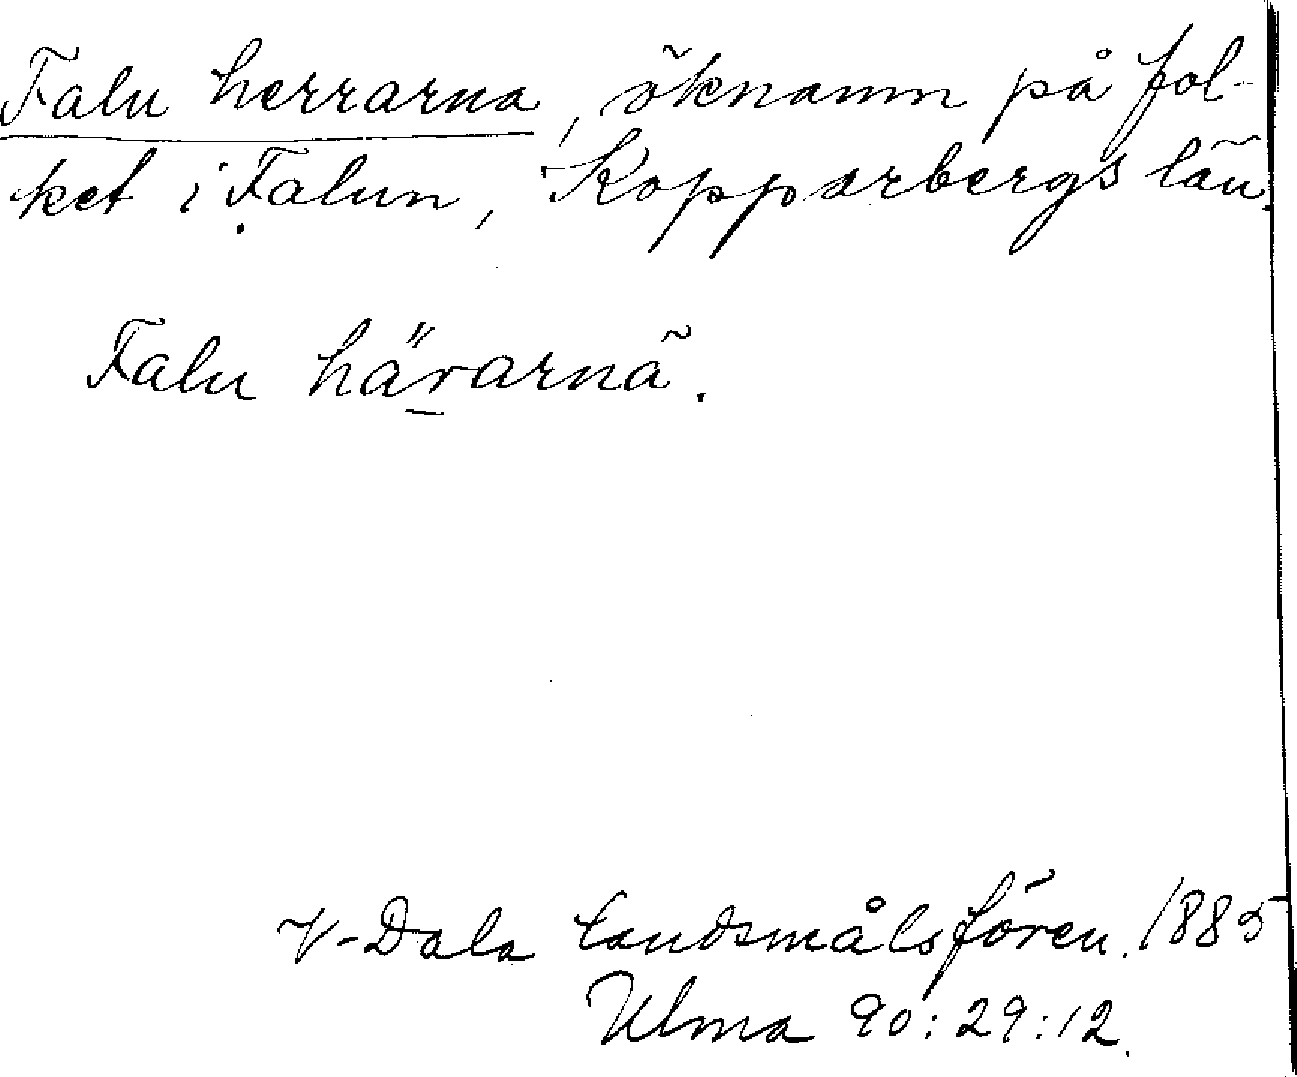 Falu herrarna, öknamn på fol-
ket i Falun, Kopparbergs län.
Falu härarnã.
V-Dala landsmålsfören. 1885
Ulma 90:29:12.